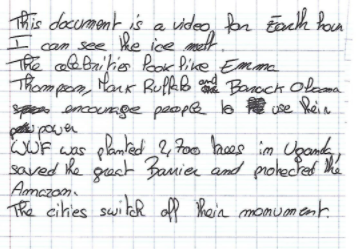 This document is a video for Earth hour
I can see the ice melt.
The celebrities look like Emma
Thompson, Mark Ruffalo and Barack Obama
encourage people to use their
power
WWF was planted 2,700 trees in Uganda,
saved the great Barrier and protected the
Amazon.
The cities switch off their monument.